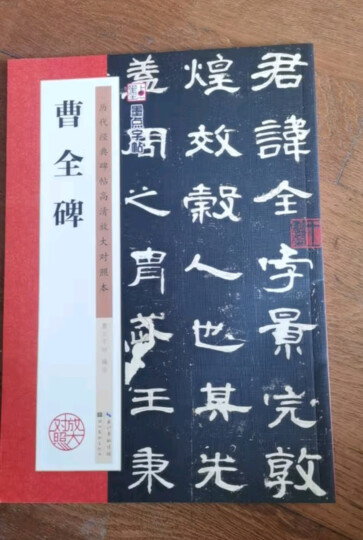 曹全碑
历代经典碑帖高清放大对照本
墨点字帖
放大
对照
君諱全字景完敦
煌效穀人也其先
蓋周之胄武王秉